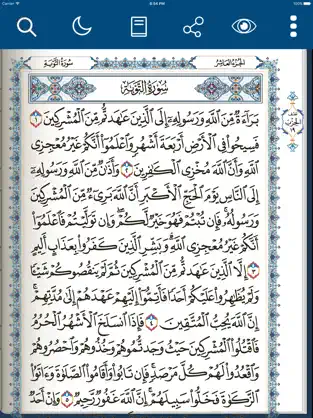 Carrier 8:54 PM 100%
الجزء العاشر سورة التوبة
سورة التوبة
بَرَآءَةٌ مِّنَ ٱللَّهِ وَرَسُولِهِۦٓ إِلَى ٱلَّذِينَ عَٰهَدتُّم مِّنَ ٱلْمُشْرِكِينَ ١
فَسِيحُوا۟ فِى ٱلْأَرْضِ أَرْبَعَةَ أَشْهُرٍ وَٱعْلَمُوٓا۟ أَنَّكُمْ غَيْرُ مُعْجِزِى
ٱللَّهِ وَأَنَّ ٱللَّهَ مُخْزِى ٱلْكَٰفِرِينَ ٢ وَأَذَٰنٌ مِّنَ ٱللَّهِ وَرَسُولِهِۦٓ
إِلَى ٱلنَّاسِ يَوْمَ ٱلْحَجِّ ٱلْأَكْبَرِ أَنَّ ٱللَّهَ بَرِىٓءٌ مِّنَ ٱلْمُشْرِكِينَ
وَرَسُولُهُۥ فَإِن تُبْتُمْ فَهُوَ خَيْرٌ لَّكُمْ وَإِن تَوَلَّيْتُمْ فَٱعْلَمُوٓا۟
أَنَّكُمْ غَيْرُ مُعْجِزِى ٱللَّهِ وَبَشِّرِ ٱلَّذِينَ كَفَرُوا۟ بِعَذَابٍ أَلِيمٍ
٣ إِلَّا ٱلَّذِينَ عَٰهَدتُّم مِّنَ ٱلْمُشْرِكِينَ ثُمَّ لَمْ يَنقُصُوكُمْ شَيْـًٔا
وَلَمْ يُظَٰهِرُوا۟ عَلَيْكُمْ أَحَدًا فَأَتِمُّوٓا۟ إِلَيْهِمْ عَهْدَهُمْ إِلَىٰ مُدَّتِهِمْ
إِنَّ ٱللَّهَ يُحِبُّ ٱلْمُتَّقِينَ ٤ فَإِذَا ٱنسَلَخَ ٱلْأَشْهُرُ ٱلْحُرُمُ
فَٱقْتُلُوا۟ ٱلْمُشْرِكِينَ حَيْثُ وَجَدتُّمُوهُمْ وَخُذُوهُمْ وَٱحْصُرُوهُمْ
وَٱقْعُدُوا۟ لَهُمْ كُلَّ مَرْصَدٍ فَإِن تَابُوا۟ وَأَقَامُوا۟ ٱلصَّلَوٰةَ وَءَاتَوُا۟
ٱلزَّكَوٰةَ فَخَلُّوا۟ سَبِيلَهُمْ إِنَّ ٱللَّهَ غَفُورٌ رَّحِيمٌ ٥ وَإِنْ